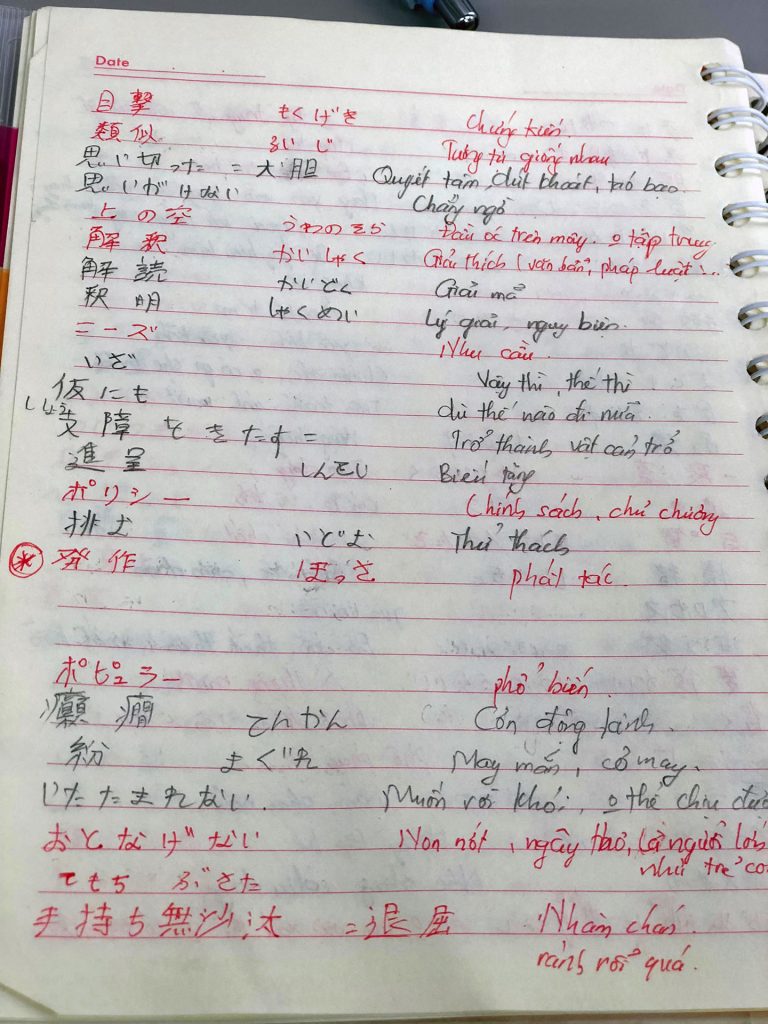 Date
目撃 もくげき Chứng kiến.
類似 るいじ Tương tự giống nhau
思い切った = 大胆 Quyết tâm, dứt khoát, táo bạo
思いがけない Chẳng ngờ
上の空 うわのそら Đầu óc trên mây. o tập trung
解釈 かいしゃく Giải thích (văn bản, pháp luật)...
解読 かいどく Giải mã
釈明 しゃくめい Lý giải, ngụy biện.
ニーズ Nhu cầu.
いざ Vậy thì, thế thì
仮にも dù thế nào đi nữa.
支障をきたす = Trở thành vật cản trở
進呈 しんてい Biếu tặng
ポリシー Chính sách, chủ chương
挑む いどむ Thử thách
* 発作 ほっさ phát tác.
ポピュラー phổ biến.
癲癇 てんかん Cơn động kinh.
紛 まぐれ May mắn, cờ may.
いたたまれない. Muốn rời khỏi, o thể chịu đượ
おとなげない Non nớt, ngây thơ, là người lớn
như trẻ co
てもち ぶさた
手持ち無沙汰 = 退屈 Nhàm chán.
rảnh rỗi quá.